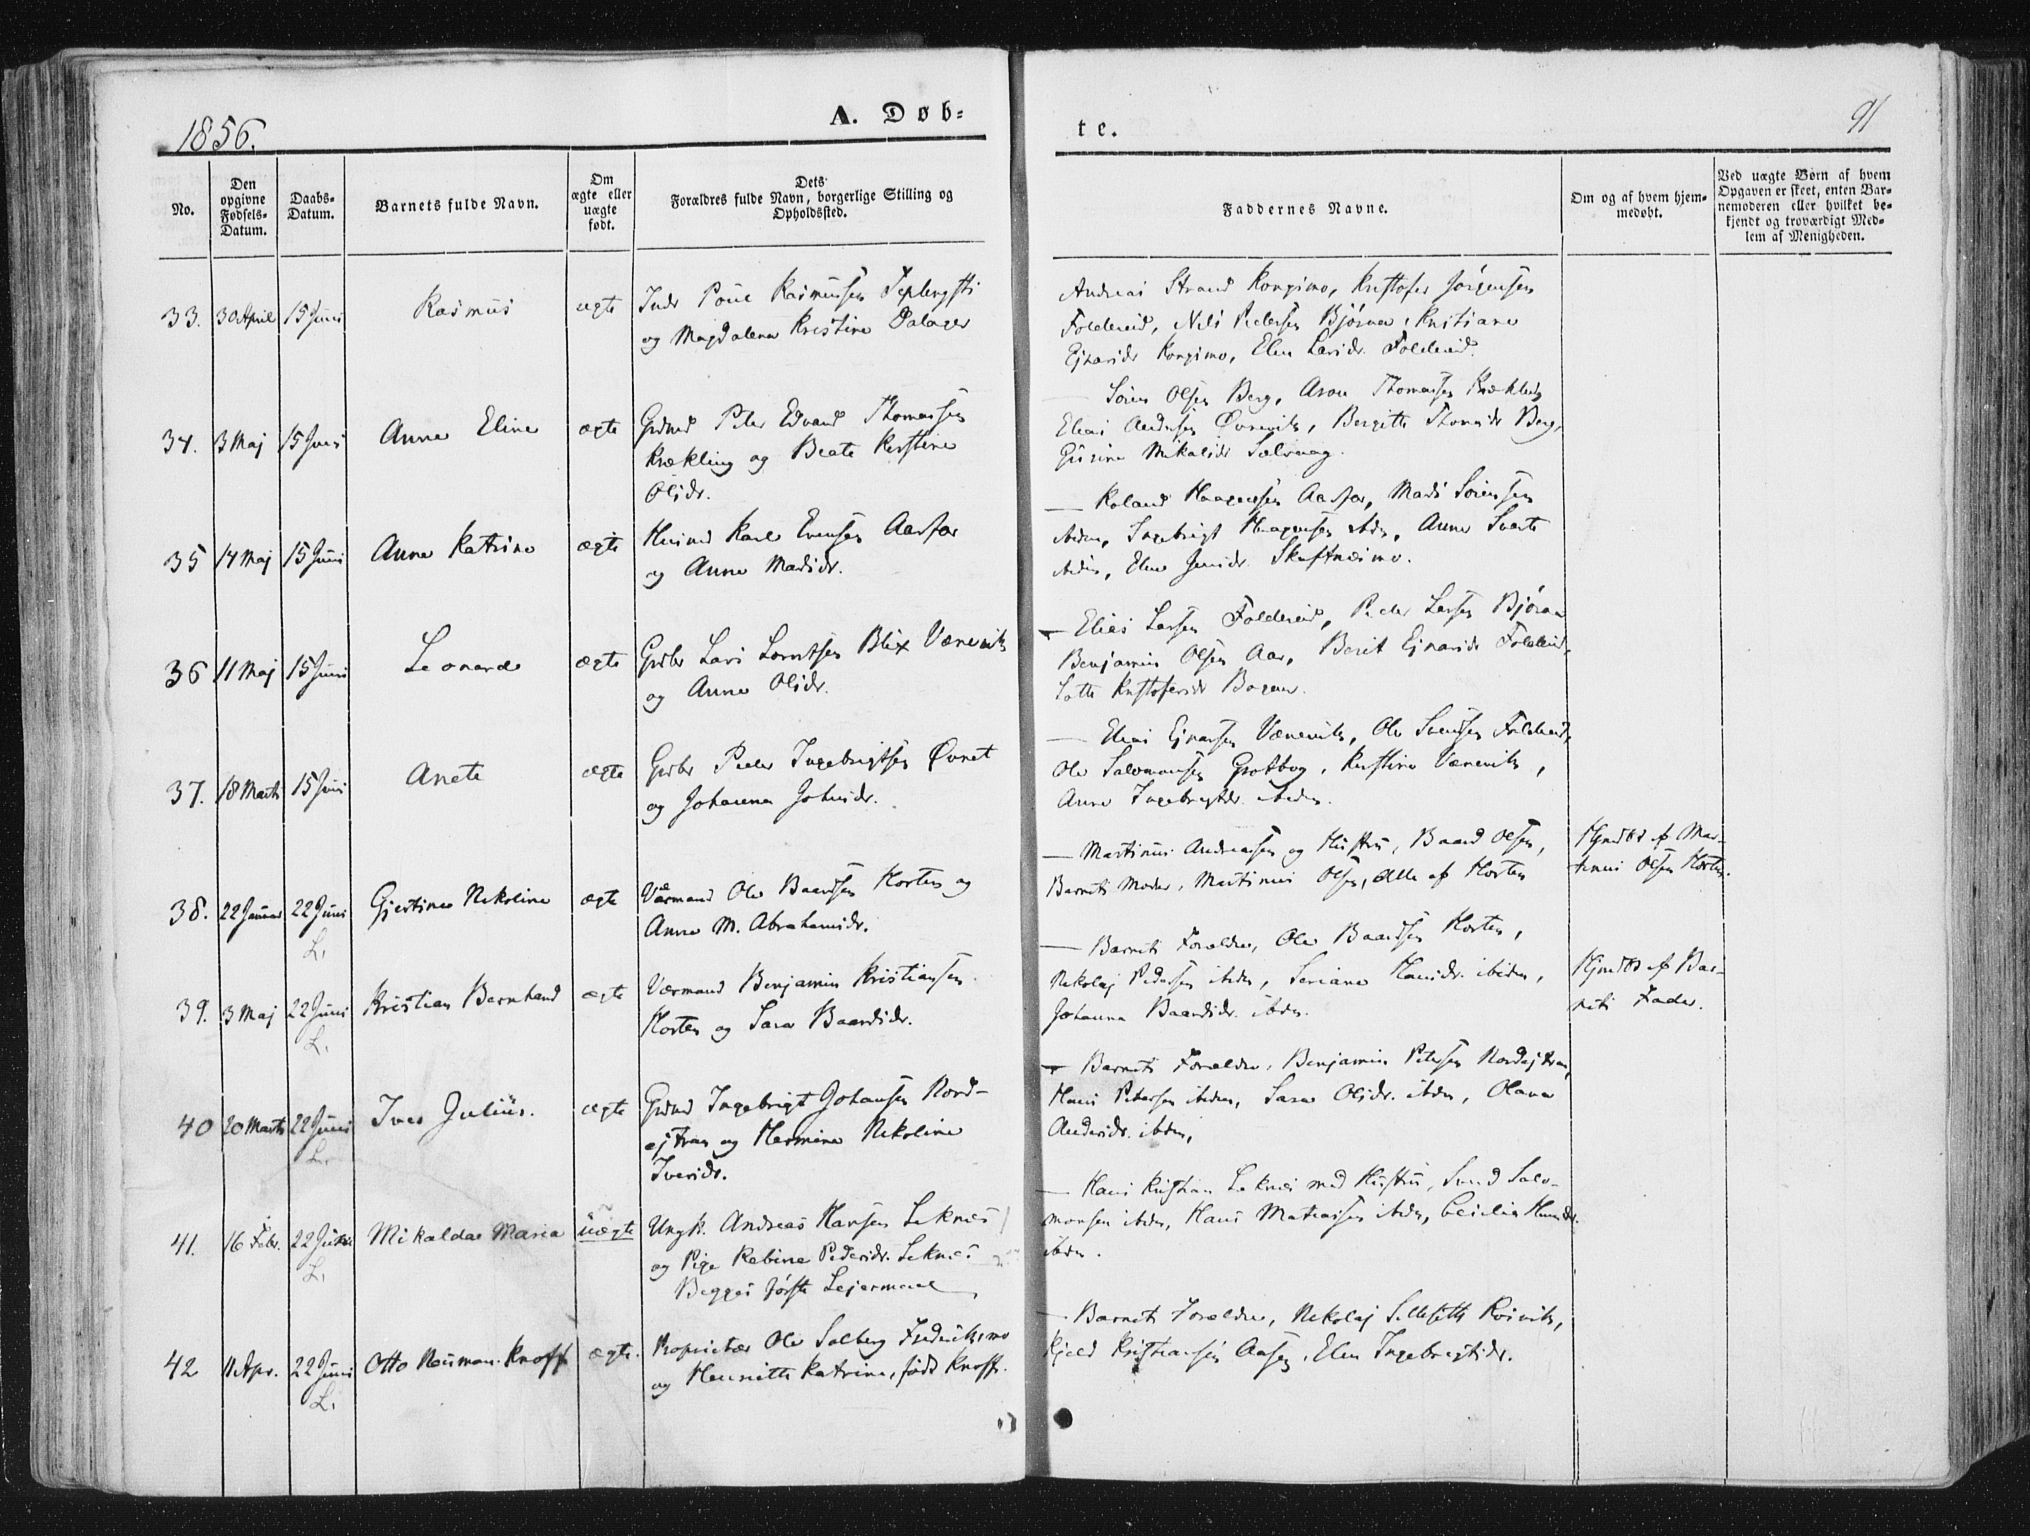 1856.
A. Døb-
te.
91
No.
Den
opgivne
Fødsels-
Datum.
Daabs-
Datum.
Barnets fulde Navn.
Om
ægte eller
uægte
født.
Dets
Forældres fulde Navn, borgerlige Stilling og
Opholdssted.
Faddernes Navne.
Om og af hvem hjem-
medøbt.
Ved uægte Børn af hvem
Opgaven er skeet, enten Bar-
nemoderen eller hvilket be-
kjendt og troværdigt Med-
lem af Menigheden.
33. 30 April 15 Juni Rasmus ægte
Rasmussen
og Magdalena Kristine Dalager
Andreas Strand Kongsmo, Kristofer Jørgensen
Foldereid, Nils Pedersen Bjøraa, Kristiane
Ejnarsdr Kongsmo, Elen Larsdr. Foldereid.
34. 3 Maj 15 Juni Anne Eline ægte
Grdmd Peter Edvard Thomassen
Krækling og Beate Kirstine
Olsdr.
— Søren Olsen Berg, Aron Thomassen Krækling
Elias Andersen Øvrevik, Bergitte Thomsdr Berg,
Gurine Mikalsdr
35 14 Maj 15 Juni Anne Katrine ægte
Husmd Karl Evensen Aarfor
og Anne Madsdr.
— Roland Haagensen Aarfor, Mads Sørensen
ibiden, Ingebrigt Haagensen ibdn, Anne
ibdn, Elen Jensdr.
36 11 Maj 15 Juni Leonard ægte
Grdbr Lars Lorntsen Blix Værevik
og Anne Olsdr.
— Elias Larsen Foldereid, Peder Larsen Bjøraa
Benjamin Olsen Aar, Berit Ejnarsdr Foldereid,
Kristofersdr
37. 18 Marts 15 Juni Anete ægte
Grdbr Peder Ingebrigtsen Øvret
og Johanna Johnsdr.
— Elias Ejnarsen Værevik, Ole Svendsen Foldereid,
Ole Salomonsen Grotbog, Kirstine Værevik,
Anne Ingebrigtdr. ibiden.
38. 22 Januar 22 Juni Gjertine Nikoline ægte
L.
Værmand Ole Baardsen Horten og
Anne M. Abrahamsdr.
— Martinus Andreassen og Hustru, Baard Olsen,
Barnets Moder, Martinus Olsen, alle af Horten
Hjmdbt af Mar-
tinus Olsen Horten.
39. 3 Maj 22 Juni Kristian Bernhard ægte
L.
Værmand Benjamin Kristiansen
Horten og Sara Baardsdr.
— Barnets Forældre, Ole Baardsen Horten,
Nikolaj Pedersen ibiden, Seriane Hansdr. ibiden,
Johanna Baardsdr. ibdn.
Hjmdbt af Bar-
nets Fader.
40 20 Marts 22 Juni Iver Julius. ægte
L.
Grdmd Ingebrigt Johansen Nord-
og Hermine Nikoline
Iversdr.
— Barnets Forældre, Benjamin Petersen
Hans Petersen ibiden, Sara Olsdr. ibdn, Olava
Andersdr. ibdn,
41. 16 Febr. 22 Juni Mikalda Maria uægte
L.
Ungk. Andreas Hansen Leknes
og Pige Rebina Pedersdr. Leknes
Begges første Lejermaal
— Hans Kristian Leknes med Hustru, Svend Salo-
monsen ibdn, Hans Matiassen ibdn, Cecilia Hansdr.
ibdn.
42 11 Apr. 22 Juni Otto Neuman Knoff ægte.
L.
Proprietær Ole Solberg
og Henritte Katrine, født Knoff.
— Barnets Forældre, Nikolaj
Kjeld Kristiansen Aasen, Elen Ingebrigtsdr.